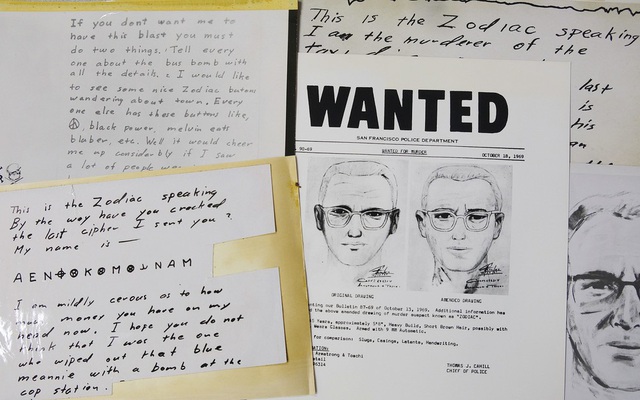 If you dont want me to
have this blast you must
do two things. Tell every
one about the bus bomb with
all the details. I would like
to see some nice Zodiac butons
wandering about town. Every
one else has these buttons like,
black power, melvin eats
bluber, etc. Well it would cheer
me up considerably if I saw
a lot of people
This is the Zodiac speaking
I am the murderer of the
last
is
his
WANTED
SAN FRANCISCO POLICE DEPARTMENT
90-69
WANTED FOR MURDER
OCTOBER 18, 1969
ORIGINAL DRAWING
AMENDED DRAWING
our Bulletin 87-69 of October 13, 1969. Additional information has
the above amended drawing of murder suspect known as "ZODIAC".
Years, approximately 5'8", Heavy Build, Short Brown Hair, possibly with
Wears Glasses. Armed with 9 MM Automatic.
for comparison: Slugs, Casings, Latents, Handwriting.
Armstrong & Toschi
THOMAS J. CAHILL
CHIEF OF POLICE
This is the Zodiac speaking
By the way have you cracked
the last cipher I sent you?
My name is —
A E N ⊕ ⊗ K ⊗ M ⊗ ⅃ N A M
I am mildly cerous as to how
much money you have on my
head now. I hope you do not
think that I was the one
who wiped out that blue
meannie with a bomb at the
cop station.